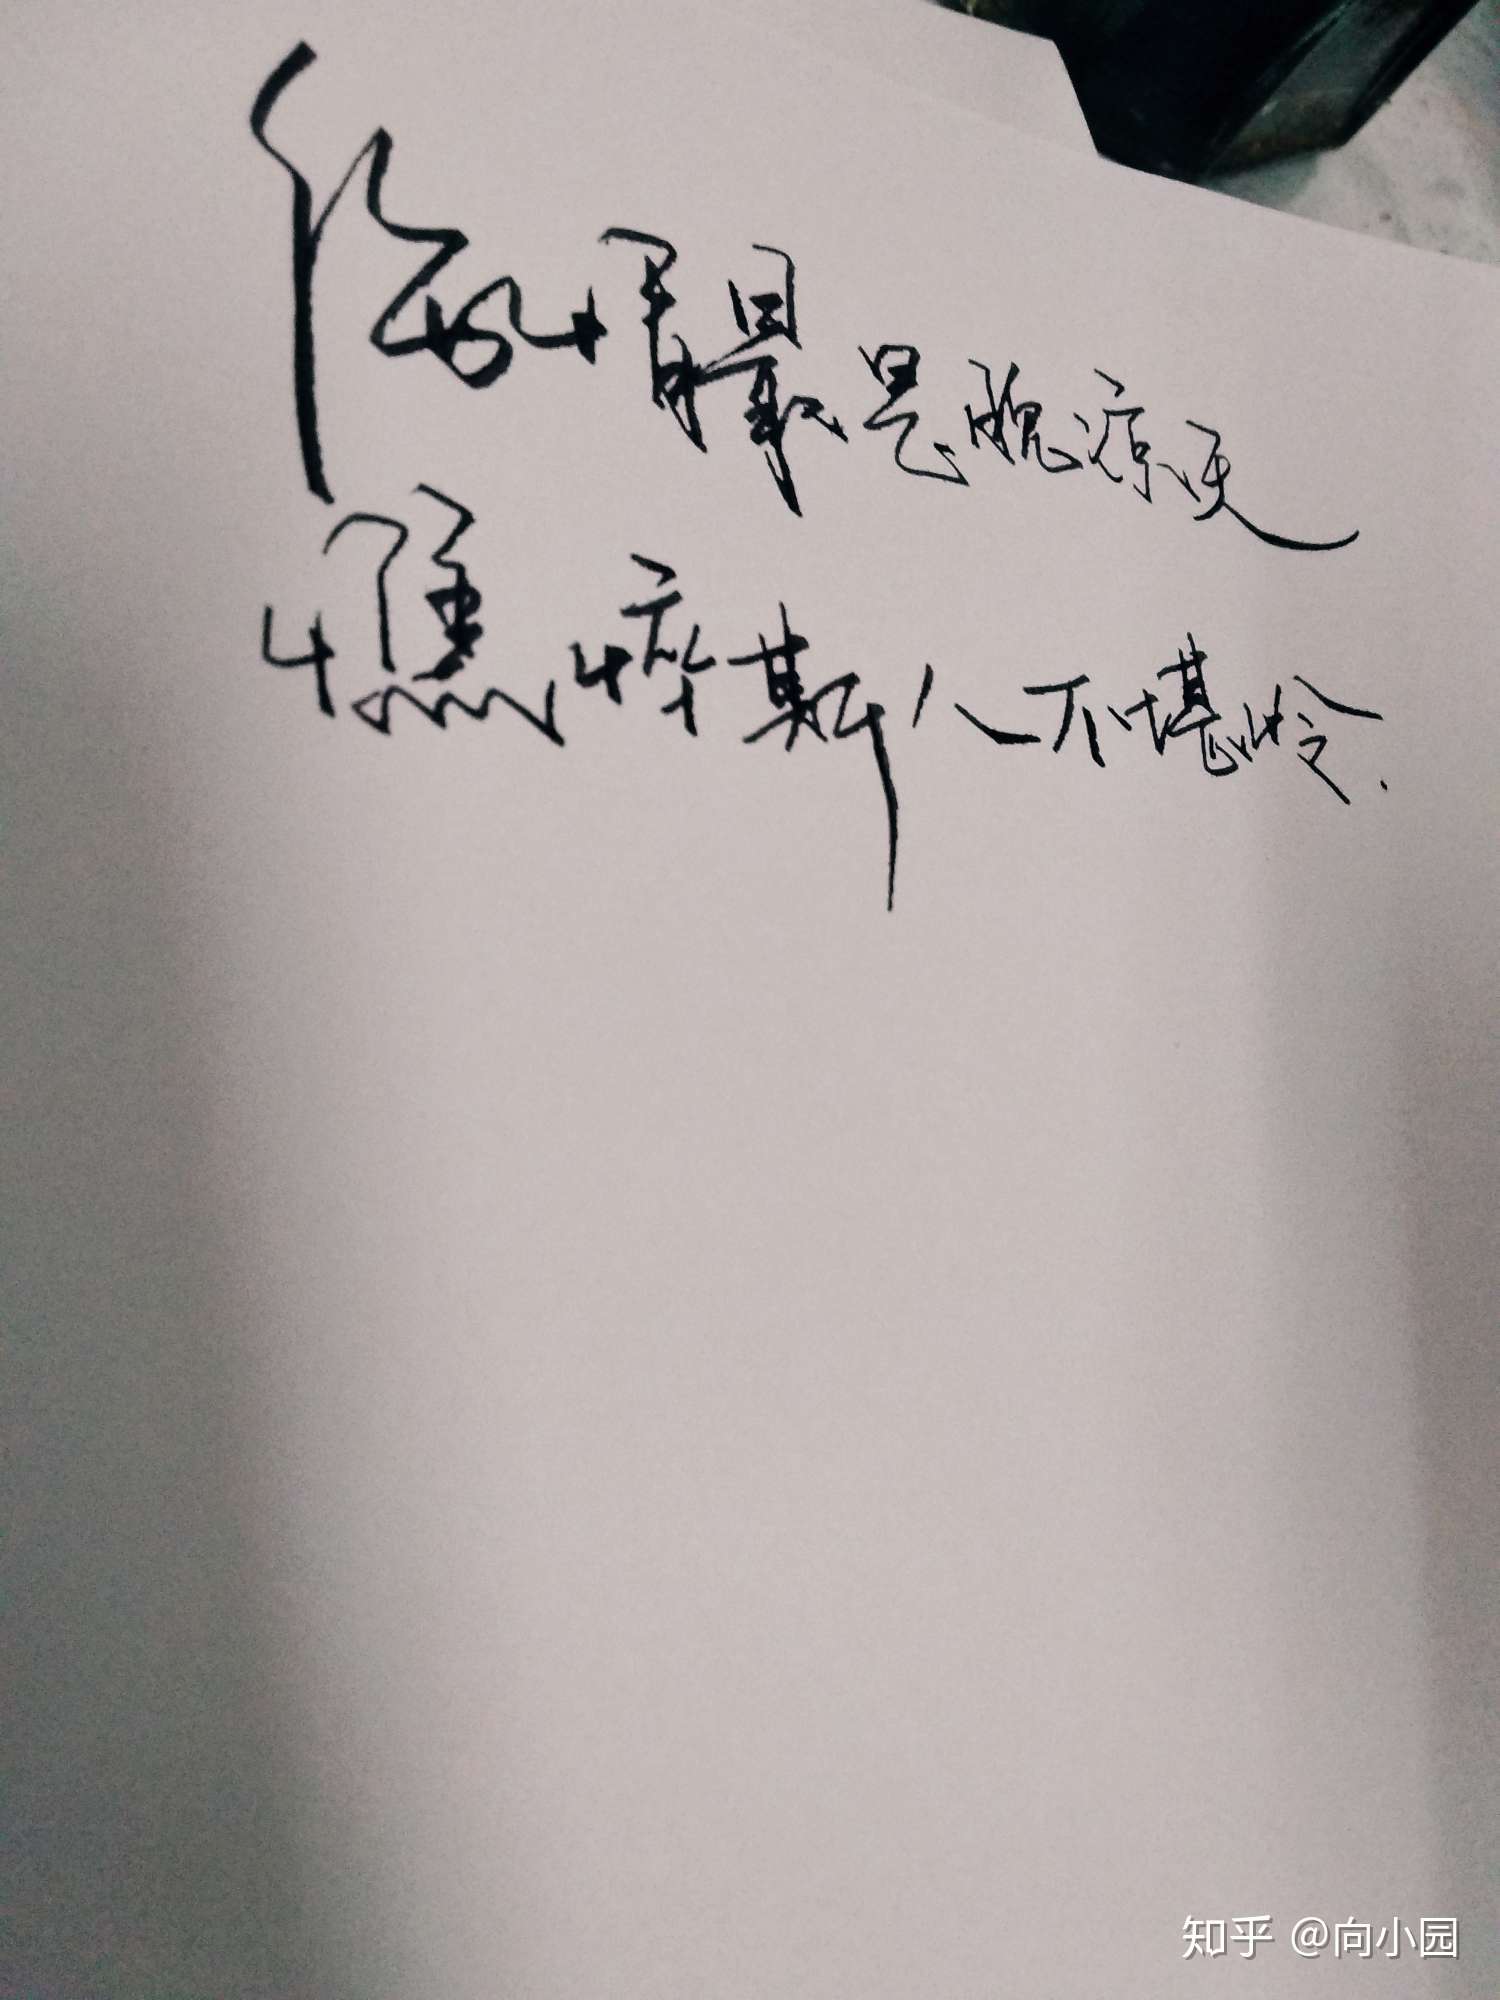 伤情最是晚凉天
憔悴斯人不堪怜.
知乎 @向小园